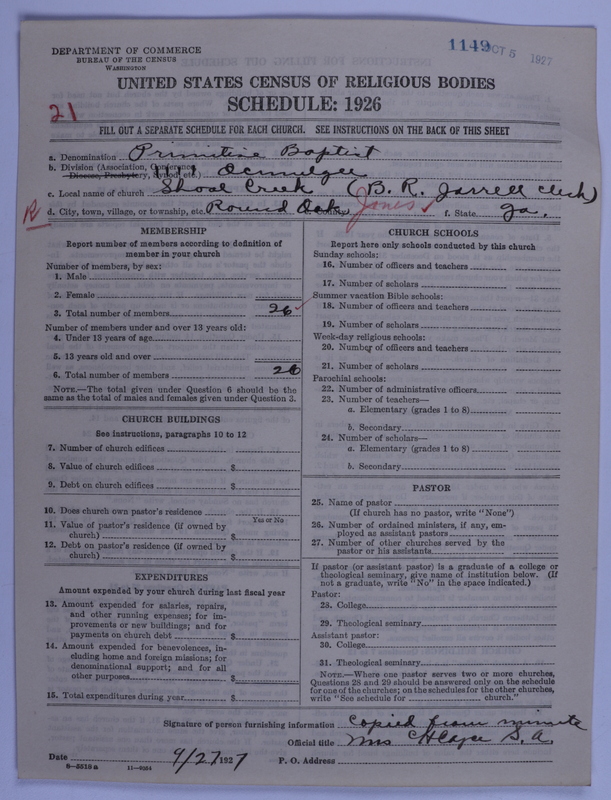 DEPARTMENT OF COMMERCE
BUREAU OF THE CENSUS
WASHINGTON
1149 OCT 5 1927
UNITED STATES CENSUS OF RELIGIOUS BODIES
SCHEDULE: 1926
21
FILL OUT A SEPARATE SCHEDULE FOR EACH CHURCH. SEE INSTRUCTIONS ON THE BACK OF THIS SHEET
a. Denomination Primitive Baptist
b. Division (Association, Conference, Diocese, Presbytery, Synod, etc.) Ocmulgee
c. Local name of church Shoal Creek (B. R. Jarrell clerk)
R d. City, town, village, or township, etc. Round Oak Jones f. State Ga.
MEMBERSHIP
Report number of members according to definition of
member in your church
Number of members, by sex:
1. Male
2. Female
3. Total number of members 26
Number of members under and over 13 years old:
4. Under 13 years of age
5. 13 years old and over
6. Total number of members 26
NOTE.—The total given under Question 6 should be the
same as the total of males and females given under Question 3.
CHURCH BUILDINGS
See instructions, paragraphs 10 to 12
7. Number of church edifices
8. Value of church edifices $
9. Debt on church edifices $
10. Does church own pastor's residence
Yes or No
11. Value of pastor's residence (if owned by
church) $
12. Debt on pastor's residence (if owned by
church) $
EXPENDITURES
Amount expended by your church during last fiscal year
13. Amount expended for salaries, repairs,
and other running expenses; for im-
provements or new buildings; and for
payments on church debt $
14. Amount expended for benevolences, in-
cluding home and foreign missions; for
denominational support; and for all
other purposes $
15. Total expenditures during year $
CHURCH SCHOOLS
Report here only schools conducted by this church
Sunday schools:
16. Number of officers and teachers
17. Number of scholars
Summer vacation Bible schools:
18. Number of officers and teachers
19. Number of scholars
Week-day religious schools:
20. Number of officers and teachers
21. Number of scholars
Parochial schools:
22. Number of administrative officers
23. Number of teachers—
a. Elementary (grades 1 to 8)
b. Secondary
24. Number of scholars—
a. Elementary (grades 1 to 8)
b. Secondary
PASTOR
25. Name of pastor
(If church has no pastor, write "None")
26. Number of ordained ministers, if any, em-
ployed as assistant pastors
27. Number of other churches served by the
pastor or his assistants
If pastor (or assistant pastor) is a graduate of a college or
theological seminary, give name of institution below. (If
not a graduate, write "No" in the space indicated.)
Pastor:
28. College
29. Theological seminary
Assistant pastor:
30. College
31. Theological seminary
NOTE.—Where one pastor serves two or more churches,
Questions 28 and 29 should be answered only on the schedule
for one of the churches; on the schedules for the other churches,
write "See schedule for church."
Signature of person furnishing information Copied from minute
Official title Mrs S. A.
Date 9/27/1927 P. O. Address
6—5515 a 11—9264